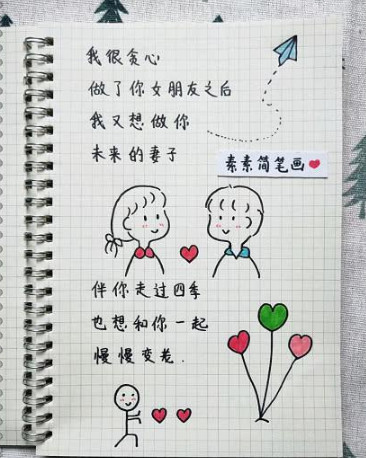 我很贪心
做了你女朋友之后
我又想做你
未来的妻子
素素简笔画
伴你走过四季
也想和你一起
慢慢变老.